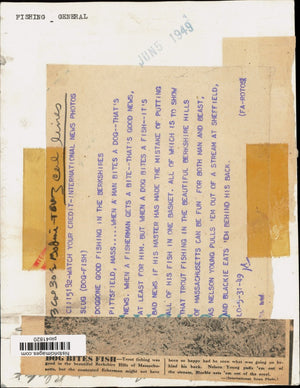 FISHING GENERAL
JUN 5 1949
3 col
CH115152-WATCH YOUR CREDIT-INTERNATIONAL NEWS PHOTOS
SLUG (DOG-FISH)
DOGGONE GOOD FISHING IN THE BERKSHIRES
PITTSFIELD, MASS....WHEN A MAN BITES A DOG--THAT'S
NEWS. WHEN A FISHERMAN GETS A BITE--THAT'S GOOD NEWS,
AT LEAST FOR HIM. BUT WHEN A DOG BITES A FISH--IT'S
BAD NEWS IF HIS MASTER HAS MADE THE MISTAKE OF PUTTING
ALL OF HIS FISH IN ONE BASKET. ALL OF WHICH IS TO SHOW
THAT TROUT FISHING IN THE BEAUTIFUL BERKSHIRE HILLS
OF MASSACHUSETTS CAN BE FUN FOR BOTH MAN AND BEAST;
AS NELSON YOUNG PULLS 'EM OUT OF A STREAM AT SHEFFIELD,
AND BLACKIE EATS 'EM BEHIND HIS BACK.
5-31-49 (FA-ROTOS)
DOG BITES FISH—Trout fishing was good in the beautiful Berkshire Hills of Massachusetts, but the contented fisherman might not have
been so happy had he seen what was going on behind his back. Nelson Young pulls 'em out of the stream, Blackie eats 'em out of the creel.
(International News Photo.)
historicimages.com